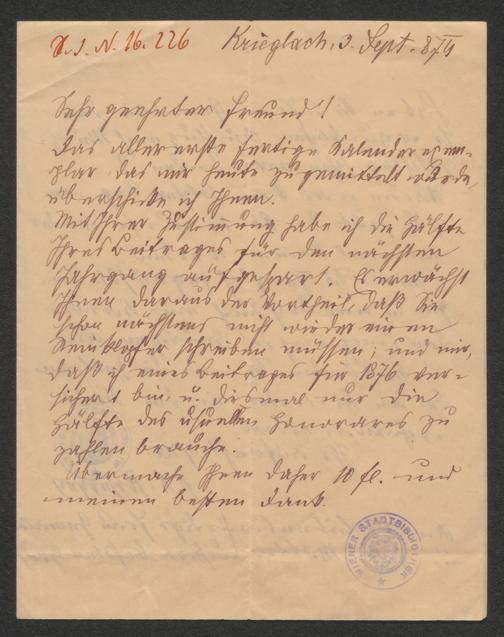 H. I. N. 16.226
Krieglach, 3. Sept. 874
Sehr geehrter Freund!
Das allererste fertige Kalenderexem-
plar das mir heute zugemittelt würde,
überschicke ich Ihnen.
Mit Ihrer Zustimmung habe ich die Hälfte
Ihres Beitrages für den nächsten
Jahrgang aufgespart. Es erwächst
Ihnen daraus der Vortheil, daß Sie
schon nächstens nicht wieder einen
Steinklopfer schreiben müssen; und mir,
daß ich eines Beitrages für 1876 ver-
sichert bin u. diesmal nur die
Hälfte des usuellen Honorares zu
zahlen brauche.
Übermache Ihnen daher 10 fl. und
meinen besten Dank.
WIENER STADTBIBLIOTHEK